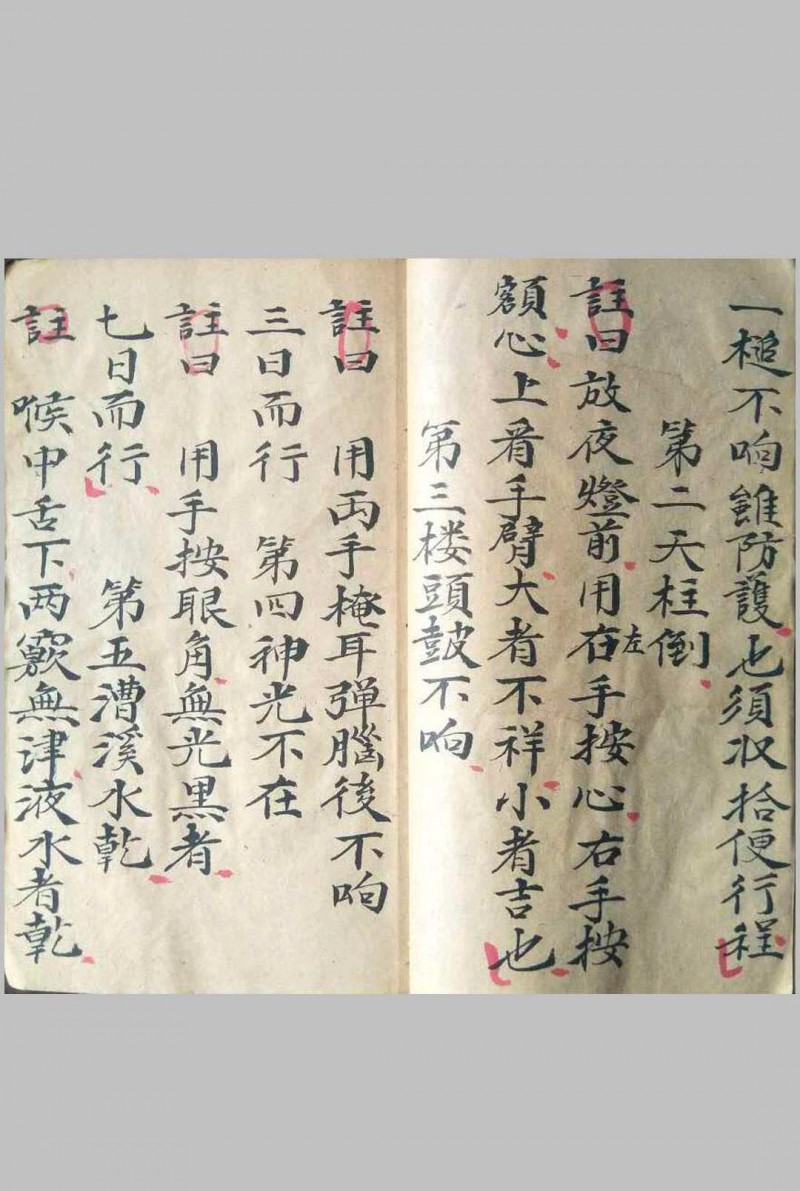 一槌不响雖防護也須収拾便行程
第二天柱倒
註曰放夜燈前用右左手按心右手按
額心上看手臂大者不祥小者吉也
第三楼頭鼓不响
註曰 用両手掩耳弹腦後不响
三日而行 第四神光不在
註曰 用手按眼角無光黒者
七日而行 第五漕溪水乾
註 喉中舌下两竅無津液水者乾